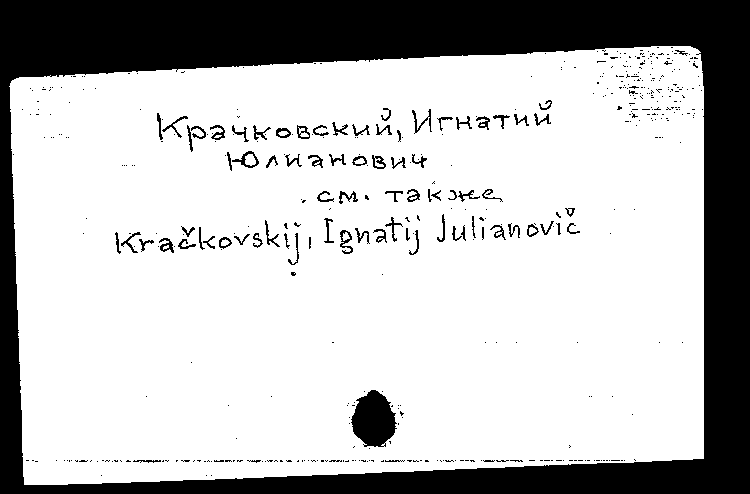 Крачковский, Игнатий
Юлианович
см. также
Kračkovskij, Ignatij Julianovič